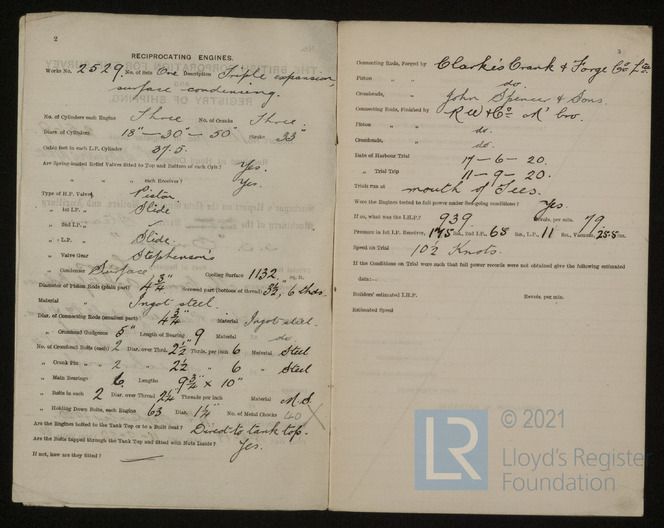 2
RECIPROCATING ENGINES.
Works No. 2529. No. of Sets One Description Triple expansion,
surface condensing.
No. of Cylinders each Engine Three No. of Cranks Three.
Diars. of Cylinders 18" — 30" — 50" Stroke 33"
Cubic feet in each L.P. Cylinder 37.5.
Are Spring-loaded Relief Valves fitted to Top and Bottom of each Cylr.? Yes.
„ „ each Receiver? Yes.
Type of H.P. Valves, Piston
„ 1st I.P. „ Slide
„ 2nd I.P. „
„ L.P. „ Slide.
„ Valve Gear Stephenson's
„ Condenser Surface Cooling Surface 1132 sq. ft.
Diameter of Piston Rods (plain part) 4 3/4" Screwed part (bottom of thread) 3 1/2", 6 thds.
Material Ingot steel.
Diar. of Connecting Rods (smallest part) 4 3/4" Material Ingot steel.
„ Crosshead Gudgeons 5" Length of Bearing 9 Material do.
No. of Crosshead Bolts (each) 2 Diar. over Thrd. 2 1/2" Thrds. per inch 6 Material Steel
„ Crank Pin „ „ 2 „ 2 1/2 „ 6 „ Steel
„ Main Bearings 6. Lengths 9 3/4" x 10"
„ Bolts in each 2 Diar. over Thread 2 1/4" Threads per inch Material M.S.
„ Holding Down Bolts, each Engine 63 Diar. 1 1/4" No. of Metal Chocks 40 X
Are the Engines bolted to the Tank Top or to a Built Seat? Direct to tank top.
Are the Bolts tapped through the Tank Top and fitted with Nuts Inside? Yes.
If not, how are they fitted?
3
Connecting Rods, Forged by Clarke's Crank & Forge Co. Ltd.
Piston „ „ do.
Crossheads, „ John Spencer & Sons.
Connecting Rods, Finished by R W & Co. M'bro.
Piston „ „ do.
Crossheads, „ do.
Date of Harbour Trial 17 - 6 - 20.
„ Trial Trip 11 - 9 - 20.
Trials run at mouth of Tees.
Were the Engines tested to full power under Sea-going conditions? Yes.
If so, what was the I.H.P.? 939. Revols. per min. 79
Pressure in 1st I.P. Receiver, 175 lbs., 2nd I.P., 65 lbs., L.P., 11 lbs., Vacuum, 25.5 ins.
Speed on Trial 10 1/2 Knots.
If the Conditions on Trial were such that full power records were not obtained give the following estimated
data:—
Builders' estimated I.H.P. Revols. per min.
Estimated Speed
© 2021
LR
Lloyd's Register
Foundation